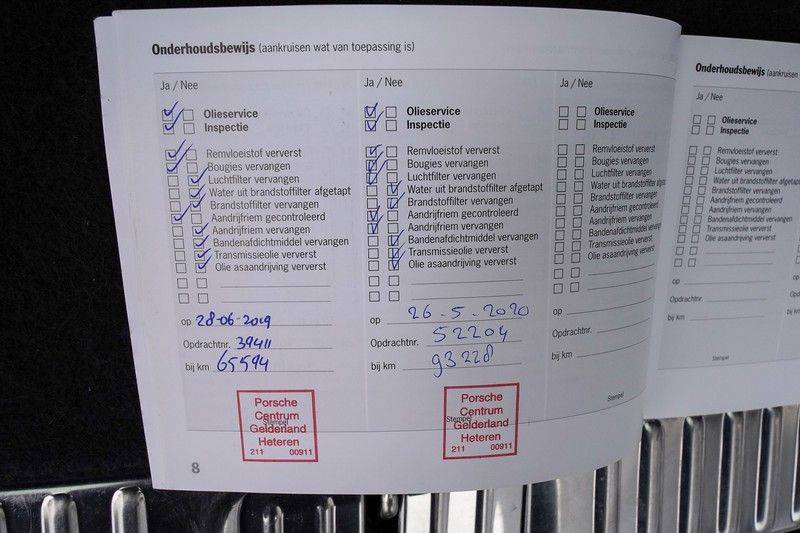 Onderhoudsbewijs (aankruisen wat van toepassing is)
Ja / Nee
Olieservice
Inspectie
Remvloeistof ververst
Bougies vervangen
Luchtfilter vervangen
Water uit brandstoffilter afgetapt
Brandstoffilter vervangen
Aandrijfriem gecontroleerd
Aandrijfriem vervangen
Bandenafdichtmiddel vervangen
Transmissieolie ververst
Olie asaandrijving ververst
op 28-06-2019
Opdrachtnr. 39411
bij km 65594
Stempel
Porsche
Centrum
Gelderland
Heteren
211 00911
8
Ja / Nee
Olieservice
Inspectie
Remvloeistof ververst
Bougies vervangen
Luchtfilter vervangen
Water uit brandstoffilter afgetapt
Brandstoffilter vervangen
Aandrijfriem gecontroleerd
Aandrijfriem vervangen
Bandenafdichtmiddel vervangen
Transmissieolie ververst
Olie asaandrijving ververst
op 26-5-2020
Opdrachtnr. 52204
bij km 93228
Stempel
Porsche
Centrum
Gelderland
Heteren
211 00911
Ja / Nee
Olieservice
Inspectie
Remvloeistof ververst
Bougies vervangen
Luchtfilter vervangen
Water uit brandstoffilter
Brandstoffilter vervangen
Aandrijfriem gecontroleerd
Aandrijfriem vervangen
Bandenafdichtmiddel
Transmissieolie ververst
Olie asaandrijving ververst
op
Opdrachtnr.
bij km
Stempel
Onderhoudsbewijs (aankruisen
Ja / Nee
Olieservice
Inspectie
Remvloeistof ververst
Bougies vervangen
Luchtfilter vervangen
Water uit brandstoffilter afgetapt
Brandstoffilter vervangen
Aandrijfriem gecontroleerd
Aandrijfriem vervangen
Bandenafdichtmiddel vervangen
Transmissieolie ververst
Olie asaandrijving ververst
op
Opdrachtnr.
bij km
Stempel
op
Opdrachtnr
bij km